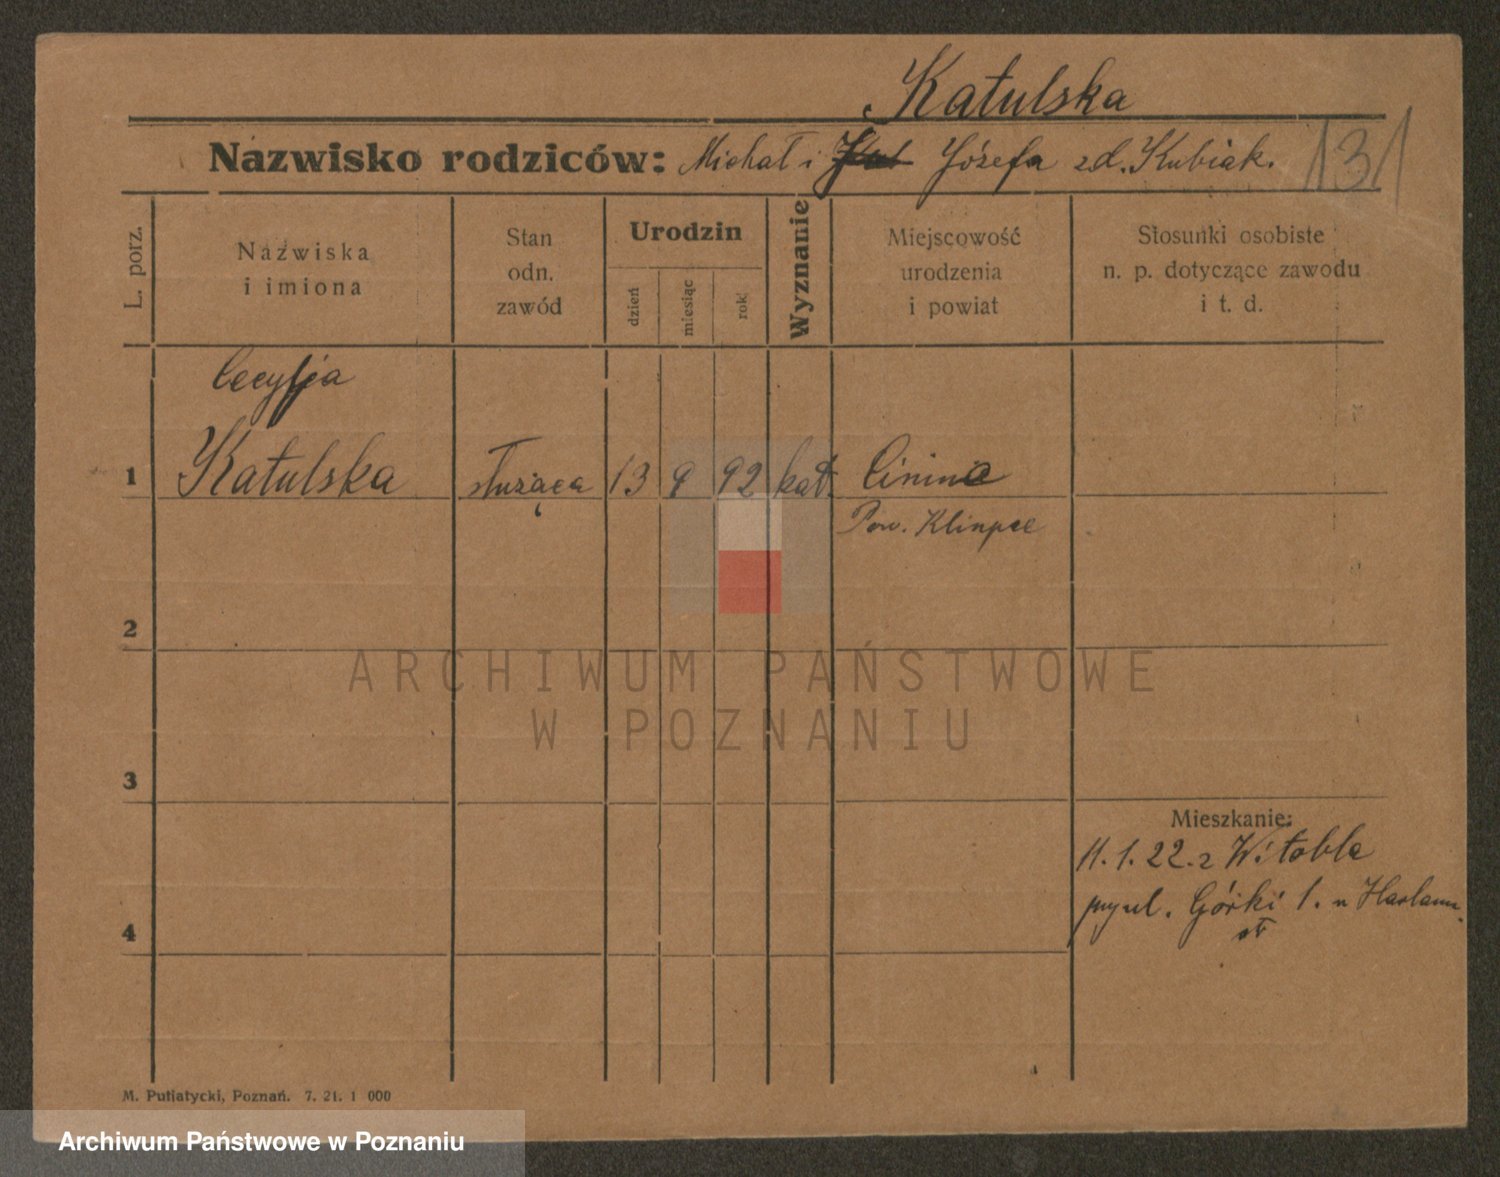 Katulska
Nazwisko rodziców: Michał i Józefa zd. Kubiak.
131
L. porz.
Nazwiska
i imiona
Stan
odn.
zawód
Urodzin
dzień
miesiąc
rok
Wyznanie
Miejscowość
urodzenia
i powiat
Stosunki osobiste
n. p. dotyczące zawodu
i t. d.
Cecylja
1 Katulska służąca 13 9 92 kat.
Pow.
2
3
4
Mieszkanie:
11.1.22. z Witobla
Górki 1.
M. Putiatycki, Poznań. 7. 21. 1 000
ARCHIWUM PAŃSTWOWE
W POZNANIU
Archiwum Państwowe w Poznaniu